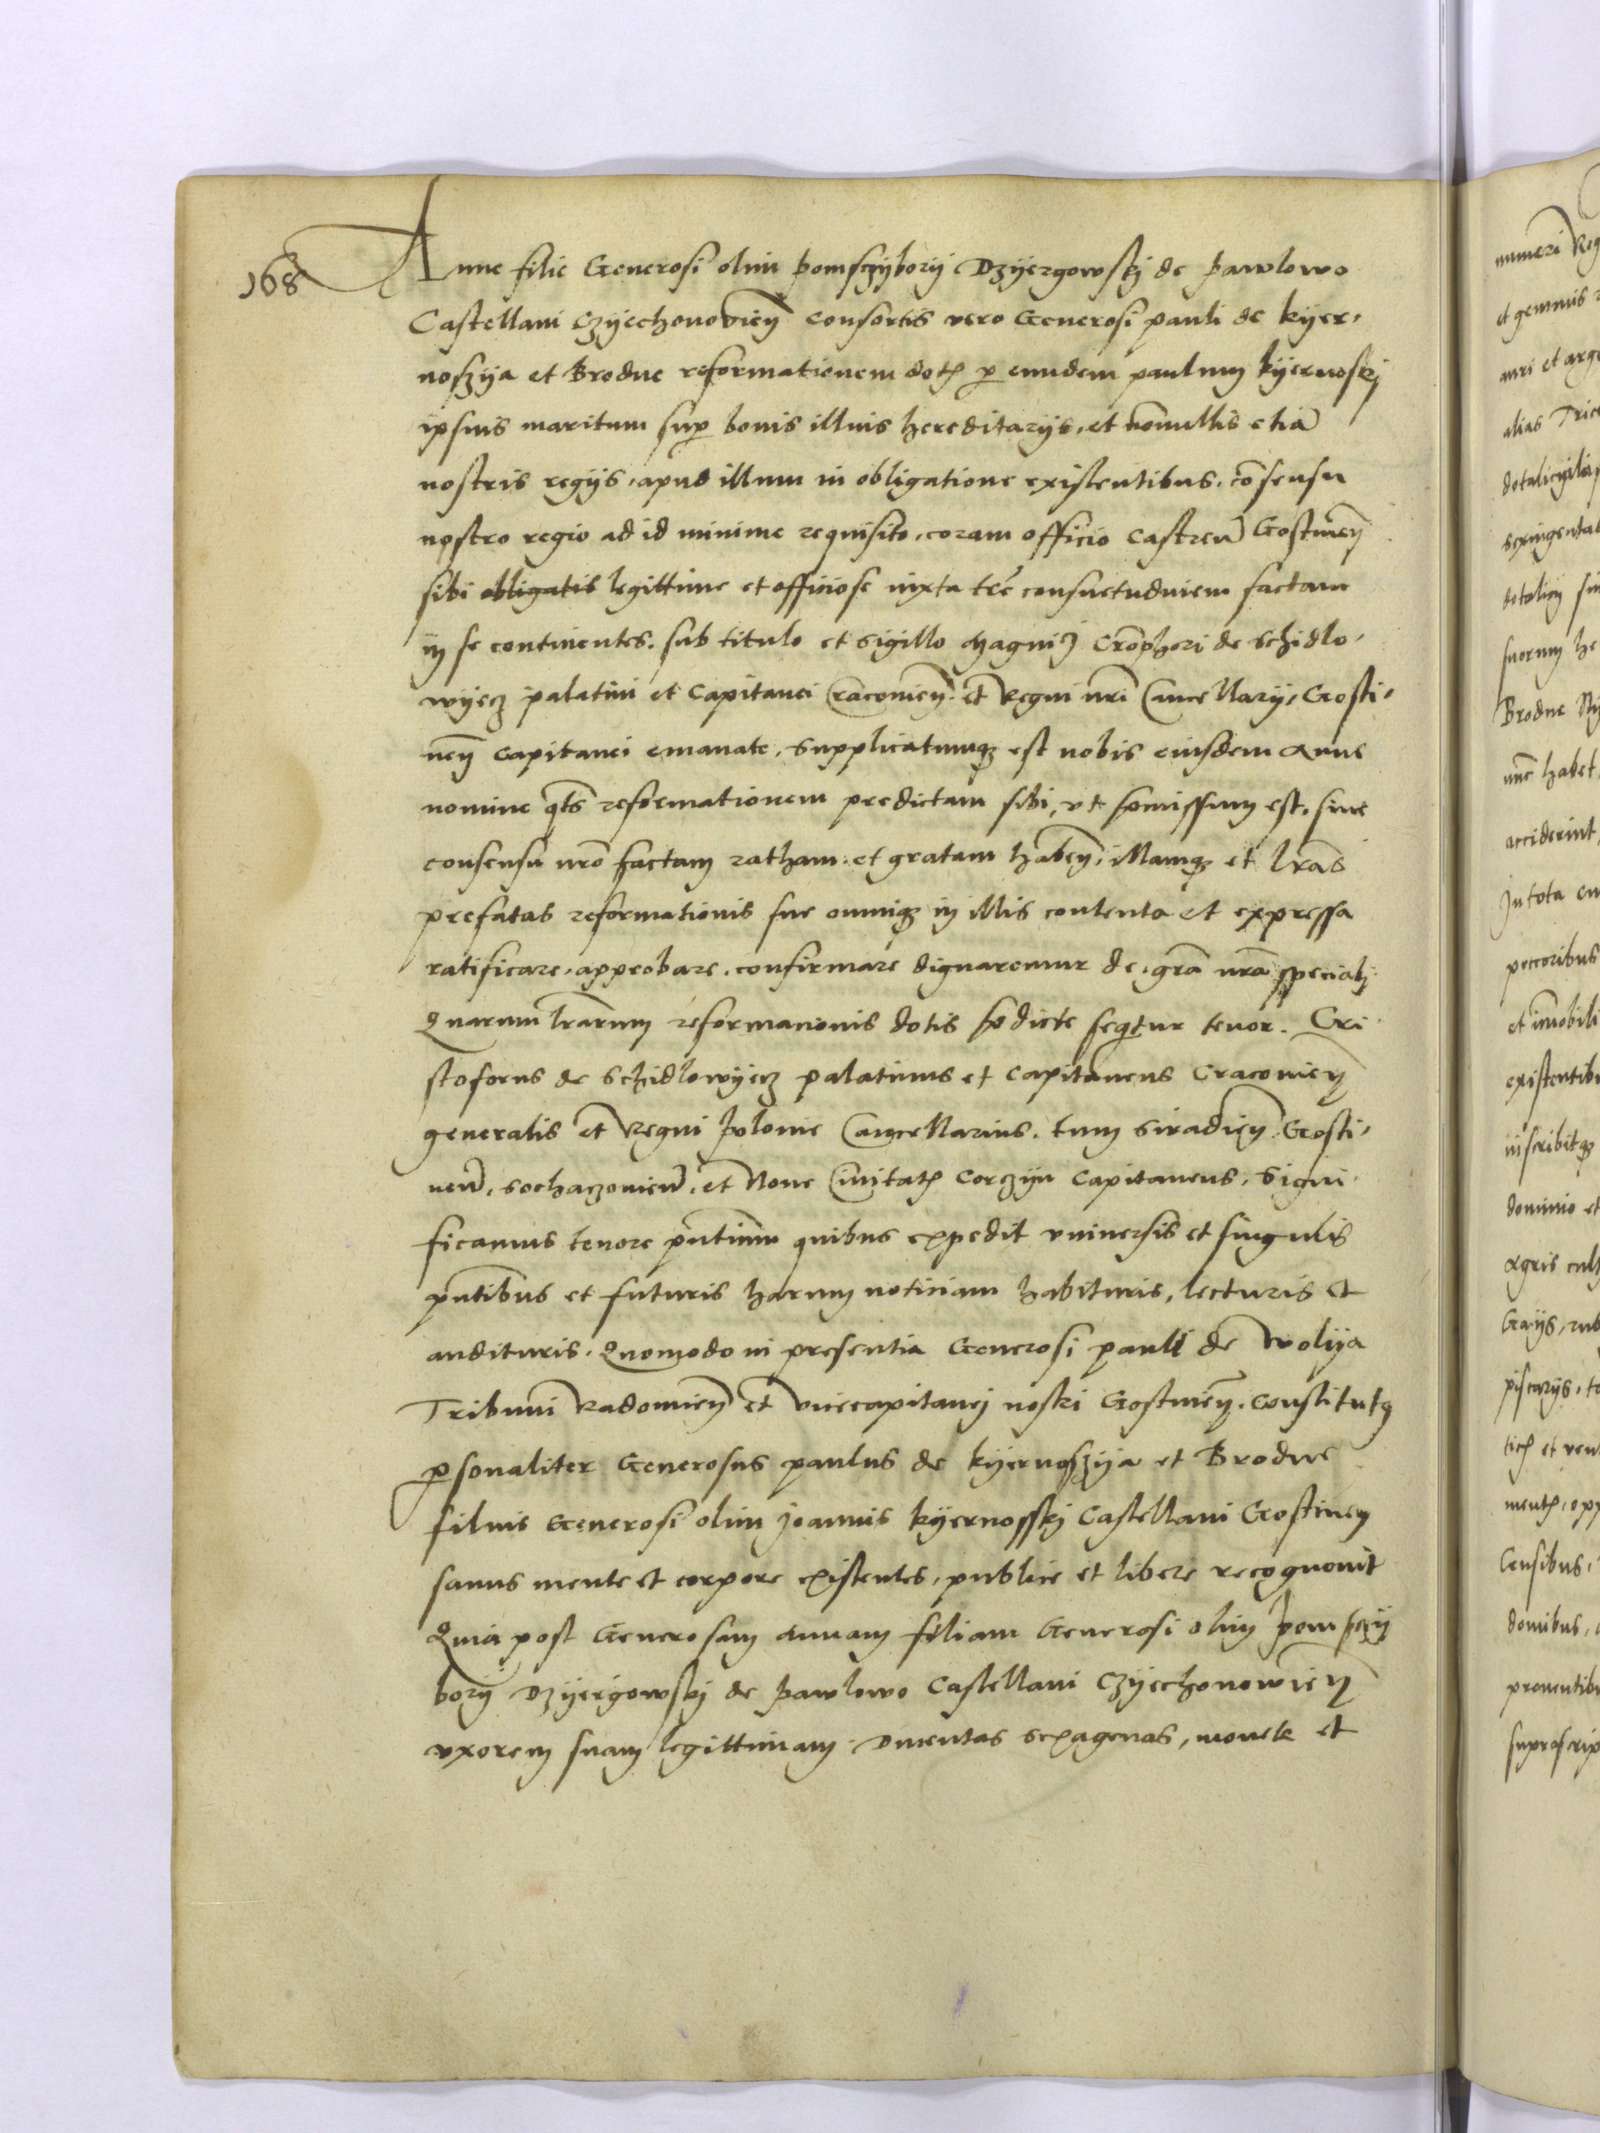 168
Anne filie Generosi olim pomsczyborij Dzyergowskj de pawlowo
Castellani Czyechonovien̄ consortis vero Generosi pauli de kyer,
noszya et Brodne reformationem dotȝ p eundem paulum kyernoskj
ipsius maritum sup bonis illius hereditarijs, et nōnullis etiā
nostris regijs, apud illum in obligatione existentibus, cōsensu
nostro regio ad id minime requisito, coram officio castren̄ Gostinen̄
sibi obligatis legittime et officiose iuxta tr̄e consuetudinem factam
in se continentes, sub titulo et sigillo Magnici Crōpheri de Schidlo,
wyecz palatini et Capitanei Cracovien̄. et Regni nr̄i Cancellarij, Gosti,
nen̄ capitanei emanate, supplicatumqȝ est nobis eiusdem Anne
nomine qt̄s reformationem predictam sibi, vt p̄missum est, sine
consensu nr̄o factam ratham et gratam haben̄, illamqȝ et lr̄as
prefatas reformationis sue omniaqȝ in illis contenta et expressa
ratificare, approbare, confirmare dignaremur de gr̄a nr̄a specialj
Quarum lr̄arum reformacionis dotis p̄dicte sequitur tenor. Cri
stoforus de Schidlowyecz palatinus et capitaneus Cracovien̄
generalis et Regni polonie Cancellarius, tum Siradien̄ Gosti,
nen̄, Sochaczovien̄, et Nove Civitatȝ Corczyn Capitaneus, Signi
ficamus tenore pn̄tium quibus expedit vniversis et singulis
pn̄tibus et futuris harum noticiam habituris, lecturis et
audituris, Quomodo in presentia Generosi pauli de Wolya
Tribuni Radomien̄ et vicecapitanej nostri Gostinen̄, Constitutꝰ
psonaliter Generosus paulus de kyernoszya et Brodne
filius Generosi olim Joannis kyernosskj Castellani Gostinen̄
sanus mente et corpore existentes, publice et libere recognovit
Quia post Generosam Annam filiam Generosi olim pomsczy
borij Dzyergowskj de pawlowo Castellani Czyechonowien̄
vxorem suam legittimam Ducentas sexagenas, monete et